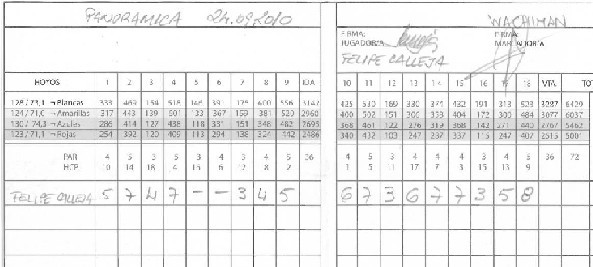 PANORAMICA 24.09.2010
WACHIMAN
FIRMA:
FIRMA:
JUGADOR/A:
FELIPE CALLEJA
HOYOS 1 2 3 4 5 6 7 8 9 IDA 10 11 12 13 14 15 16 17 18 VTA
Blancas 333 469 518 146 175 400 556 3142 425 530 169 330 374 432 191 313 523 3287 6429
Amarillas 317 443 139 501 367 159 381 520 2960 400 502 151 300 353 404 172 300 484 3077 6037
Azules 286 414 127 438 118 331 348 482 2695 368 461 122 276 319 368 142 271 440 2767 5462
Rojas 254 392 120 409 113 294 138 324 442 2486 340 432 103 247 287 337 115 247 407 2515 5001
PAR 4 5 3 5 3 4 3 4 5 36 4 5 3 4 4 4 3 4 5 36 72
HCP 10 14 18 4 15 6 12 8 2 1 5 11 17 7 3 15 13 9
FELIPE CALLEJA 5 7 4 7 - - 3 4 5 6 7 3 6 7 7 3 5 8